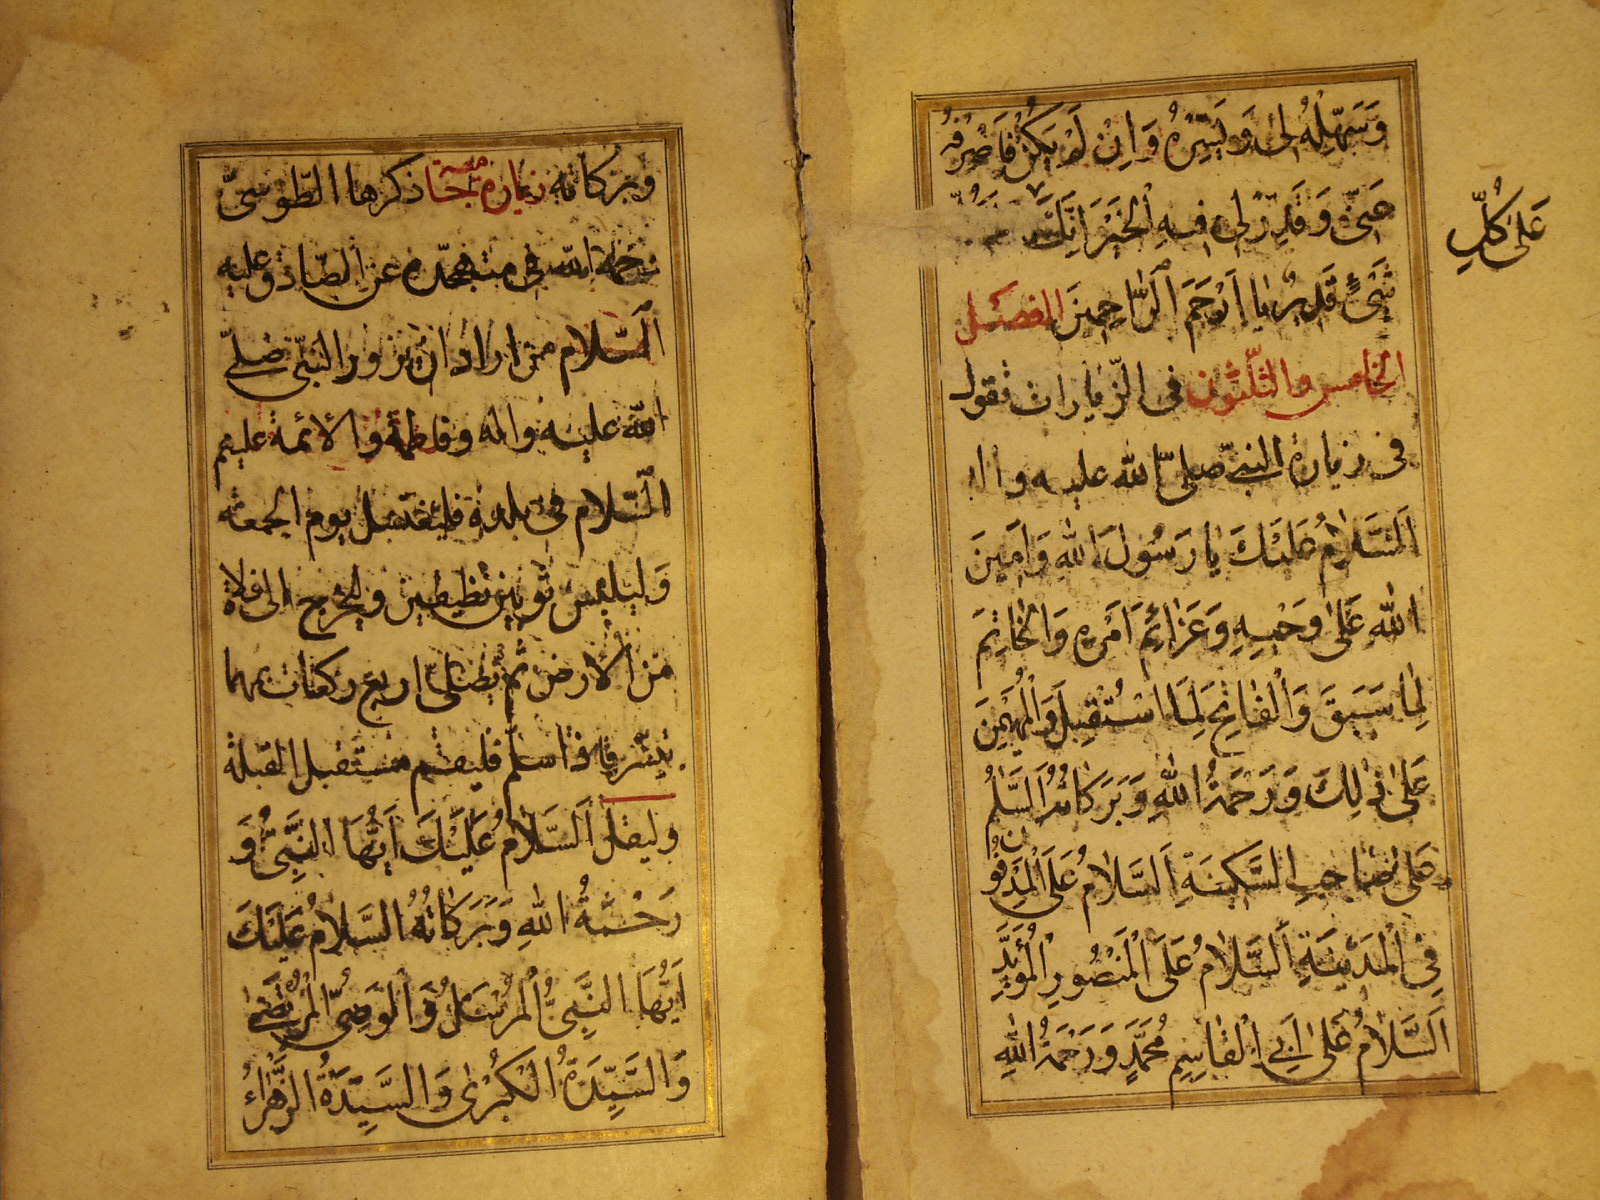 وَسَهِّلْهُ لِي وَيَسِّرْهُ وَاِنْ لَمْ يَكُنْ فَاصْرِفْهُ
عَنّي وَقَدِّرْ لِي فيهِ الْخَيْرَ اِنَّكَ
عَلى كُلِّ
شَيْءٍ قَديرٌ يا اَرْحَمَ الرّاحِمينَ الفصل
الخامس والثلثون في الزيارات فقول
في زيارة النبي صلى الله عليه واله
اَلسَّلامُ عَلَيْكَ يا رَسُولَ اللهِ وَاَمينَ
اللهِ عَلى وَحْيِهِ وَعَزائِمِ اَمْرِهِ وَالْخاتِمَ
لِما سَبَقَ وَالْفاتِحَ لِمَا اسْتُقْبِلَ وَالْمُهَيْمِنَ
عَلى ذلِكَ وَرَحْمَةُ اللهِ وَبَرَكاتُهُ اَلسَّلامُ
عَلى صاحِبِ السَّكينَةِ اَلسَّلامُ عَلَى الْمَدْفُونِ
فِي الْمَدينَةِ اَلسَّلامُ عَلَى الْمَنْصُورِ الْمُؤَيَّدِ
اَلسَّلامُ عَلى اَبِي الْقاسِمِ مُحَمَّدٍ وَرَحْمَةُ اللهِ
وبركاته زيارة ذكرها الطوسي
رحمه الله في متهجده عن الصادق عليه
السلام من اراد ان يزور النبي صلى
الله عليه واله وفاطمة والأئمة عليهم
السلام في بلده فليغتسل يوم الجمعة
وليلبس ثوبين نظيفين وليخرج الى فلاة
من الأرض ثم يصلي اربع ركعات بهما
تيسر فاذا سلم فليقم مستقبل القبلة
وليقل اَلسَّلامُ عَلَيْكَ اَيُّهَا النَّبِيُّ وَ
رَحْمَةُ اللهِ وَبَرَكاتُهُ السَّلامُ عَلَيْكَ
اَيُّهَا النَّبِيُّ الْمُرْسَلُ وَالْوَصِيُّ الْمُرْتَضى
وَالسَّيِّدَةُ الْكُبْرى وَالسَّيِّدَةُ الزَّهْراءُ